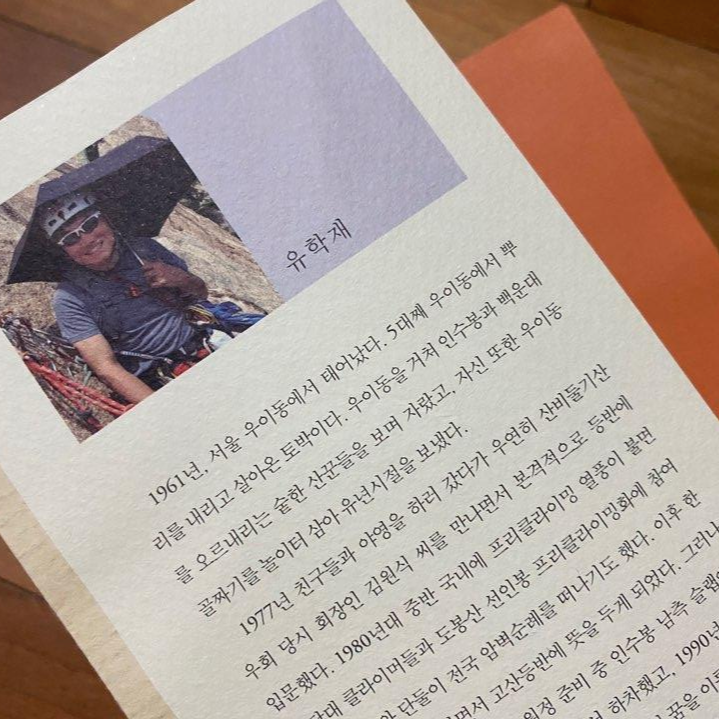 유학재
1961년, 서울 우이동에서 태어났다. 5대째 우이동에서 뿌
리를 내리고 살아온 토박이다. 우이동을 거쳐 인수봉과 백운대
를 오르내리는 숱한 산꾼들을 보며 자랐고, 자신 또한 우이동
골짜기를 놀이터 삼아 유년시절을 보냈다.
1977년 친구들과 야영을 하러 갔다가 우연히 산비둘기산
우회 당시 회장인 김원식 씨를 만나면서 본격적으로 등반에
입문했다. 1980년대 중반 국내에 프리클라이밍 열풍이 불면
클라이머들과 도봉산 선인봉 프리클라이밍화에 참여
단둘이 전국 암벽순례를 떠나기도 했다. 이후 한
고산등반에 뜻을 두게 되었다. 그러나
준비 중 인수봉 남측 슬랩
하차했고, 1990년
꿈을